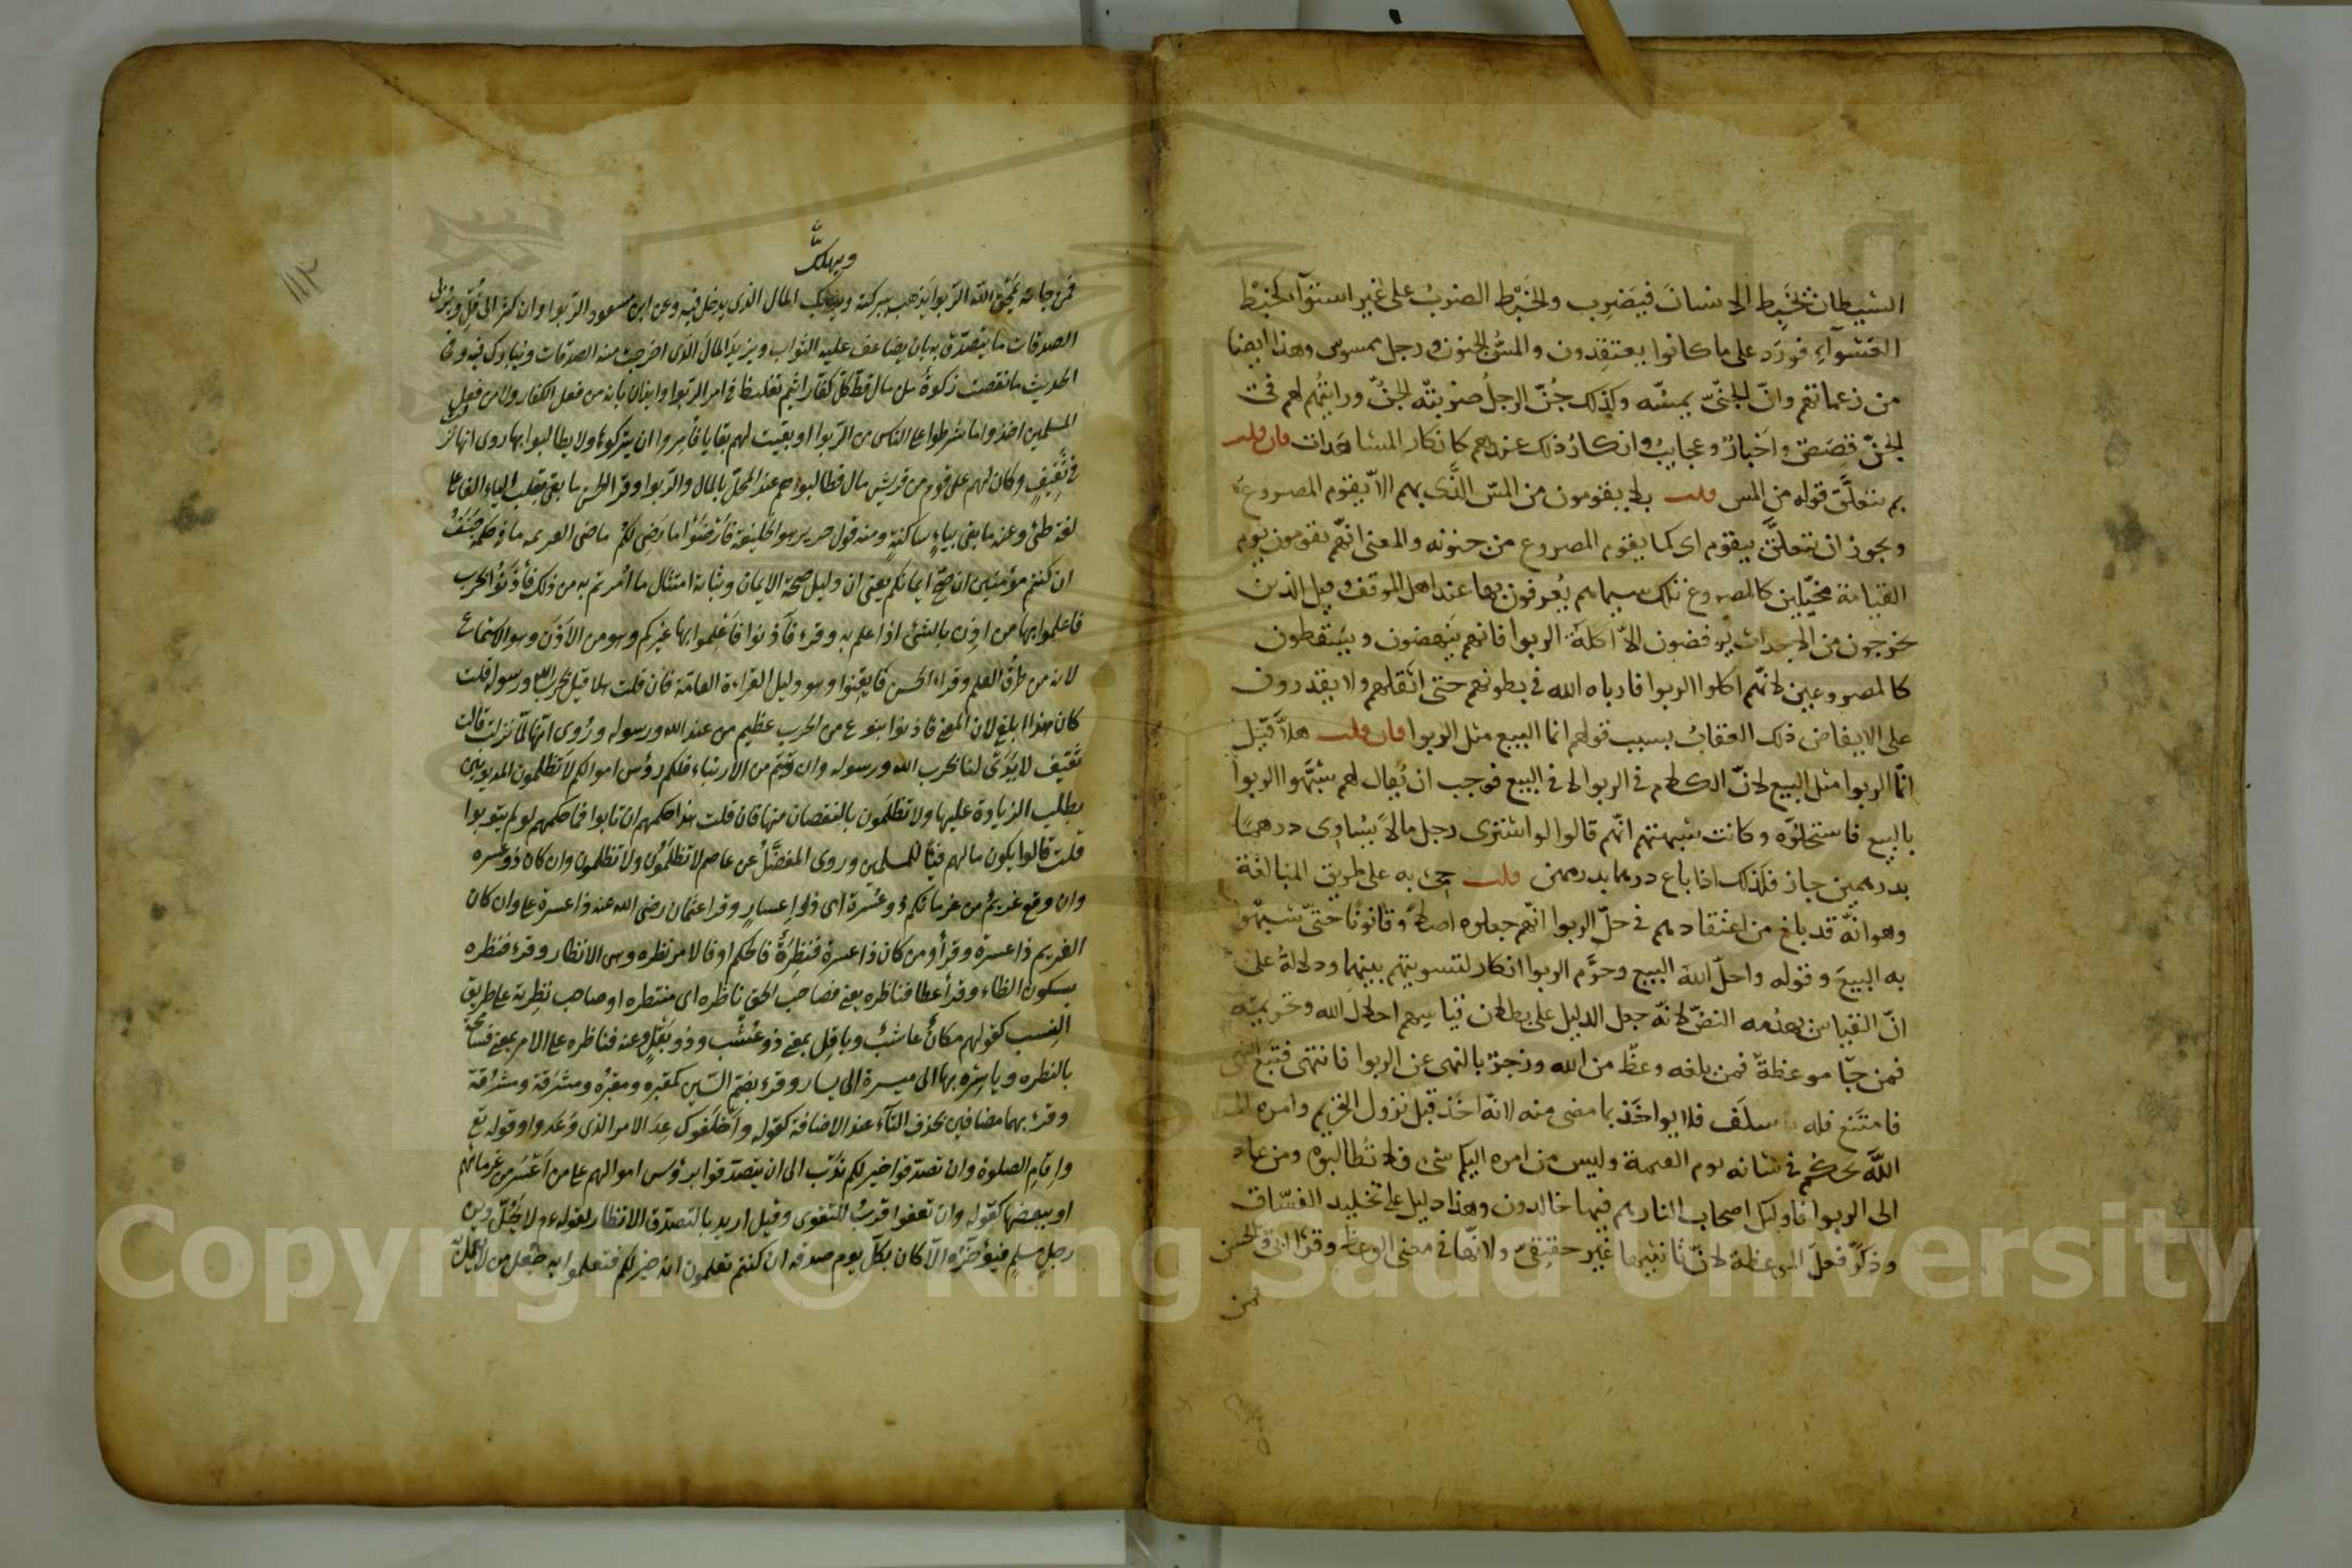 الشيطان يخبط الانسان فيصرع والخبط الضرب على غير استوآ كخبط
العشوآء فورد على ما كانوا يعتقدون والمسّ الجنون ورجل ممسوس وهذا ايضا
من زعماتهم وانّ الجنّىّ يمسّه وكذلك جُنّ الرجل ضربتّه الجنّ ورايتهم لهم فى
الجنّ قصص واخبار وعجايب وانكار ذلك عندهم كانكار المشاهدات فان قلت
بم يتعلّق قوله من المس قلت بلا يقومون من المسّ الذى بهم الّا يقوم المصروع
ويجوز ان يتعلّق بيقوم اى كما يقوم المصروع من جنونه والمعنى انّهم يقومون يوم
القيامة مخبّلين كالمصروعين تلك سيماهم يُعرفون بها عند اهل الموقف وقيل الذين
يخرجون من الاجداث يوفضون الّا اكلة الربوا فانهم ينهضون ويسقطون
كالمصروعين لانّهم اكلوا الربوا فارباه الله فى بطونهم حتى اثقلهم ولا يقدرون
على الايفاض ذلك العقاب بسبب قولهم انما البيع مثل الربوا فان قلت هلّا قيل
انّما الربوا مثل البيع لانّ الكلام فى الربوا لا فى البيع فوجب ان يُقال لهم شبّهوا الربوا
بالبيع فاستحلّوه وكانت شبهتهم انّهم قالوا لو اشترى رجل مالا يُساوى درهمًا
بدرهمين جاز فكذلك اذا باع درهما بدرهمين قلت جىء به على طريق المبالغة
وهو انّه قد بلغ من اعتقادهم فى حلّ الربوا انّهم جعلوه اصلا وقانونًا حتىّ شبّهوا
به البيعَ وقوله واحلّ الله البيع وحرَّم الربوا انكار لتسويتهم بينهما ودلالةُ على
انّ القياس يهدمه النصّ لانّه جعل الدليل على بطلان قياسهم احلال الله وتحريمه
فمن جّاه موعظة فمن بلغه وعظٌ من الله وزجرٌ بالنهى عن الربوا فانتهى فتبع النهى
فامتنع فله ما سلَف فلا يواخَذ بما مضى منه لانّه اخذ قبل نزول التحريم وامره الى
اللّه يحكم فى شانه يوم القيمة وليس من امره اليكم شىء فلا تُطالبوه ومن عاد
الى الربوا فاوليك اصحاب النار هم فيها خالدون وهذا دليل على تخليد الفسّاق
وذكّر فعلَ الموعظة لانّ تانيثها غير حقيقىّ ولانّها فى معنى الوعظ وقرأ ابىّ والحسن
فمن
ويهلك
فمن جاءته يمحق اللّه الربوا يذهب ببركته ويهلك المال الذى يدخل فيه وعن ابن مسعود الربوا وان كثر الى قُلّ ويربى
الصدقات ما يتصدّق به بان يضاعف عليه الثواب ويزيد المال الذى اخرجت منه الصدقات ويبارك فيه وفى
الحديث ما نقصت زكوة من مال قطّ كل كفّار اثيم تغليظ فى امر الربوا وايذان بانه من فعل الكفار ولا من فعل
المسلمين اخذوا ما شرطوا على الناس من الربوا وبقيت لهم بقايا فأمروا ان يتركوها ولا يطالبوا بها روى انها نزلت
فى ثقيف وكان لهم على قوم من قريش مال فطالبوهم عند المحلّ بالمال والربوا وقرأ الحسن ما بقى بقلب الياء الفا على
لغة طئ وعنه ما بقى بياءٍ ساكنةٍ ومنه قول جرير هو الخليفة فارضَوْا ما رَضِى لكم ماضى العزيمة ما فى حكمه جَنَفُ
ان كنتم مؤمنين ان صحّ ايمانكم يعنى ان دليل صحّة الايمان وثباته امتثال ما اُمرتم به من ذلك فأذَنُوا بحرب
فاعلموا بها من اذِنَ بالشئ اذا علم به وقرئ فآذنوا فاعلموا بها غيركم وهو من الاَذَن وهو الاستماع
لانه من طرق العلم وقراءة الحسن فايقنوا وهو دليل القراءة العامّة فان قلت هلا قيل بحرب الله ورسوله قلت
كان هذا ابلغ لان المعنى فاذنوا بنوع من الحرب عظيم من عند الله ورسوله ورُوى انّها لمّا نزلت قالت
ثقيف لا يَدَىْ لنا بحرب الله ورسوله وان تبتم من الارتباء فلكم رؤس اموالكم لا تظلمون المديونين
بطلب الزيادة عليها ولا تظلَمون بالنقصان منها فان قلت هذا حكمهم ان تابوا فما حكمهم لو لم يتوبوا
قلت قالوا يكون مالهم فيئًا للمسلمين وروى المفضَّل عن عاصم لا تظلمون ولا تظلمون وان كان ذو عسرة
وان وقع غريم من غرمائكم ذو عُسْرة اى ذو اِعسارٍ وقرأ عثمان رضى الله عنه ذا عسرة على وان كان
الغريم ذا عسرة وقرأ ومن كان ذا عسرة فنَظِرَةٌ فالحكم او فالامر نظرة وهى الانظار وقرئ فنظرة
بسكون الظاء وقرأ عطا فناظره بمعنى فصاحب الحق ناظره اى منتظره او صاحب نظرته على طريق
النسب كقولهم مكانٌ عاشبٌ وباقل بمعنى ذو عُشْبٍ وذو بَقْلٍ وعنه فناظره على الامر بمعنى فسامحه
بالنظرة وياسره بها الى ميسرة الى يسار وقرئ بضم السّين كمقبرة ومقبُرة ومشرَقة ومشرُقة
وقرئ بهما مضافين بحذف التآء عند الاضافة كقوله واَخْلَفوك عِدَ الامر الذى وَعَدوا وقوله تع
واقام الصلوة وان تصدقوا خير لكم ندْب الى ان يتصدّقوا برؤس اموالهم على من اَعْسَر من غرمائهم
او ببعضها كقوله وان تعفوا اقرب للتقوى وقيل اريد بالتصدق الانظار لقوله عم لا يَحِلّ دين
رجلٍ مسلمٍ فيؤخّره الّا كان بكلّ يوم صدقة ان كنتم تعلمون انه خير لكم فتعلموا به جُعل من لا يعمل
١١٢
Copyright © King Saud University